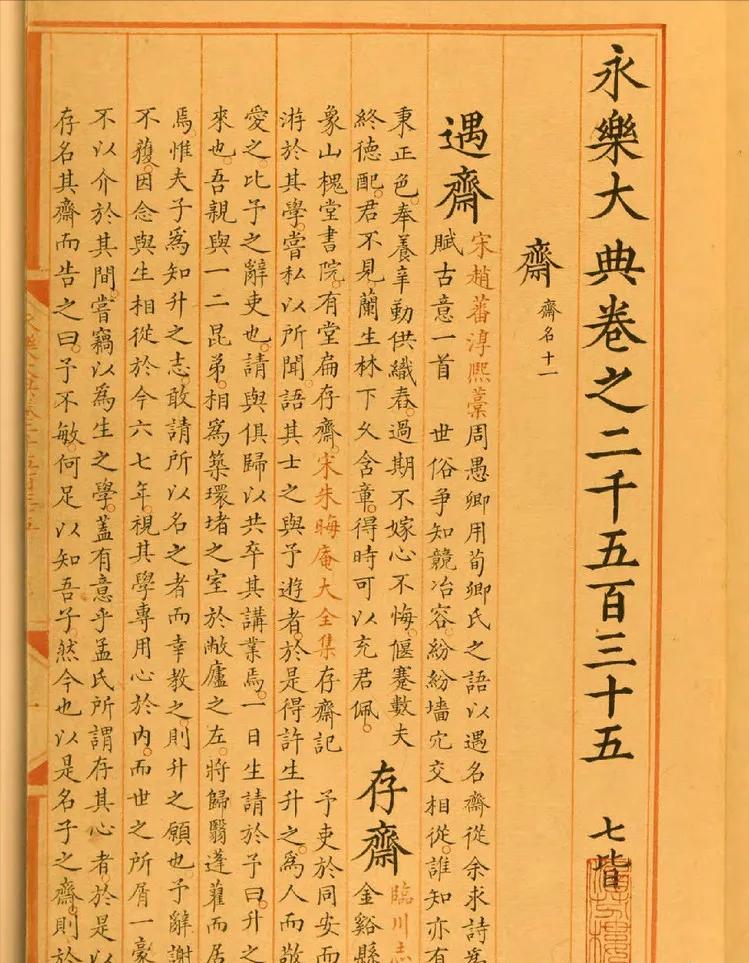 永樂大典卷之二千五百三十五 七皆
齋 齋名十一
遇齋
宋趙蕃淳熙藁周愚卿用荀卿氏之語以遇名齋從余求詩為
賦古意一首 世俗爭知競冶容。紛紛墻宂交相從。誰知亦有
秉正色。奉養辛勤供織舂。過期不嫁心不悔。偃蹇數夫
終德配。君不見蘭生林下久含章。得時可以充君佩。
存齋
臨川志
金谿縣
象山槐堂書院。有堂扁存齋。宋朱晦庵大全集存齋記 予吏於同安而
游於其學。嘗私以所聞語其士之與予遊者。於是得許生升之。為人而敬
愛之。比予之辭吏也。請與俱歸以共卒其講業焉。一日生請於予曰。升之
來也。吾親與一二昆弟。相為築環堵之室於敝廬之左。將歸翳蓬藋而居
焉。惟夫子為知升之志。敢請所以名之者而幸教之。則升之願也。予辭謝
不獲。因念與生相從於今六七年。視其學專用心於內。而世之所屑一豪
不以介於其間。嘗竊以為生之學。蓋有意乎孟氏所謂存其心者。於是以
存名其齋而告之曰。予不敏。何足以知吾子。然今也以是名子之齋。則於